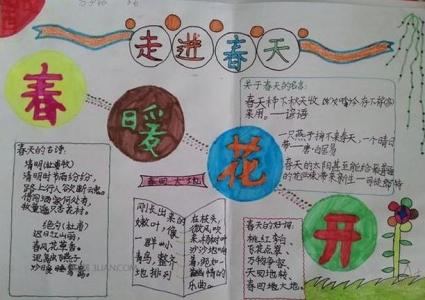 走进春天
春
暖
花
开
关于春天的名言:
春天种下秋天收
来用。——谚语
一只燕子拥不来春天,一个晴日
春天的太阳甚至给最
春天的古诗
清明(杜牧)
清明时节雨纷纷,
路上行人欲断魂。
借问酒家何处有,
牧童遥指杏花村。
绝句(杜甫)
迟日江山丽,
春风花草香。
泥融飞燕子,
沙暖
春回大地
刚长出来的
嫩叶,像
一群小
鸟,整齐
地排列
在枝头,
微风吹
来,杨树叶
沙沙地响
着,宛如一
首幽情的
乐曲。
春天的好词:
桃红柳
百花点翠、
万物争
天回地转、
春回大地、